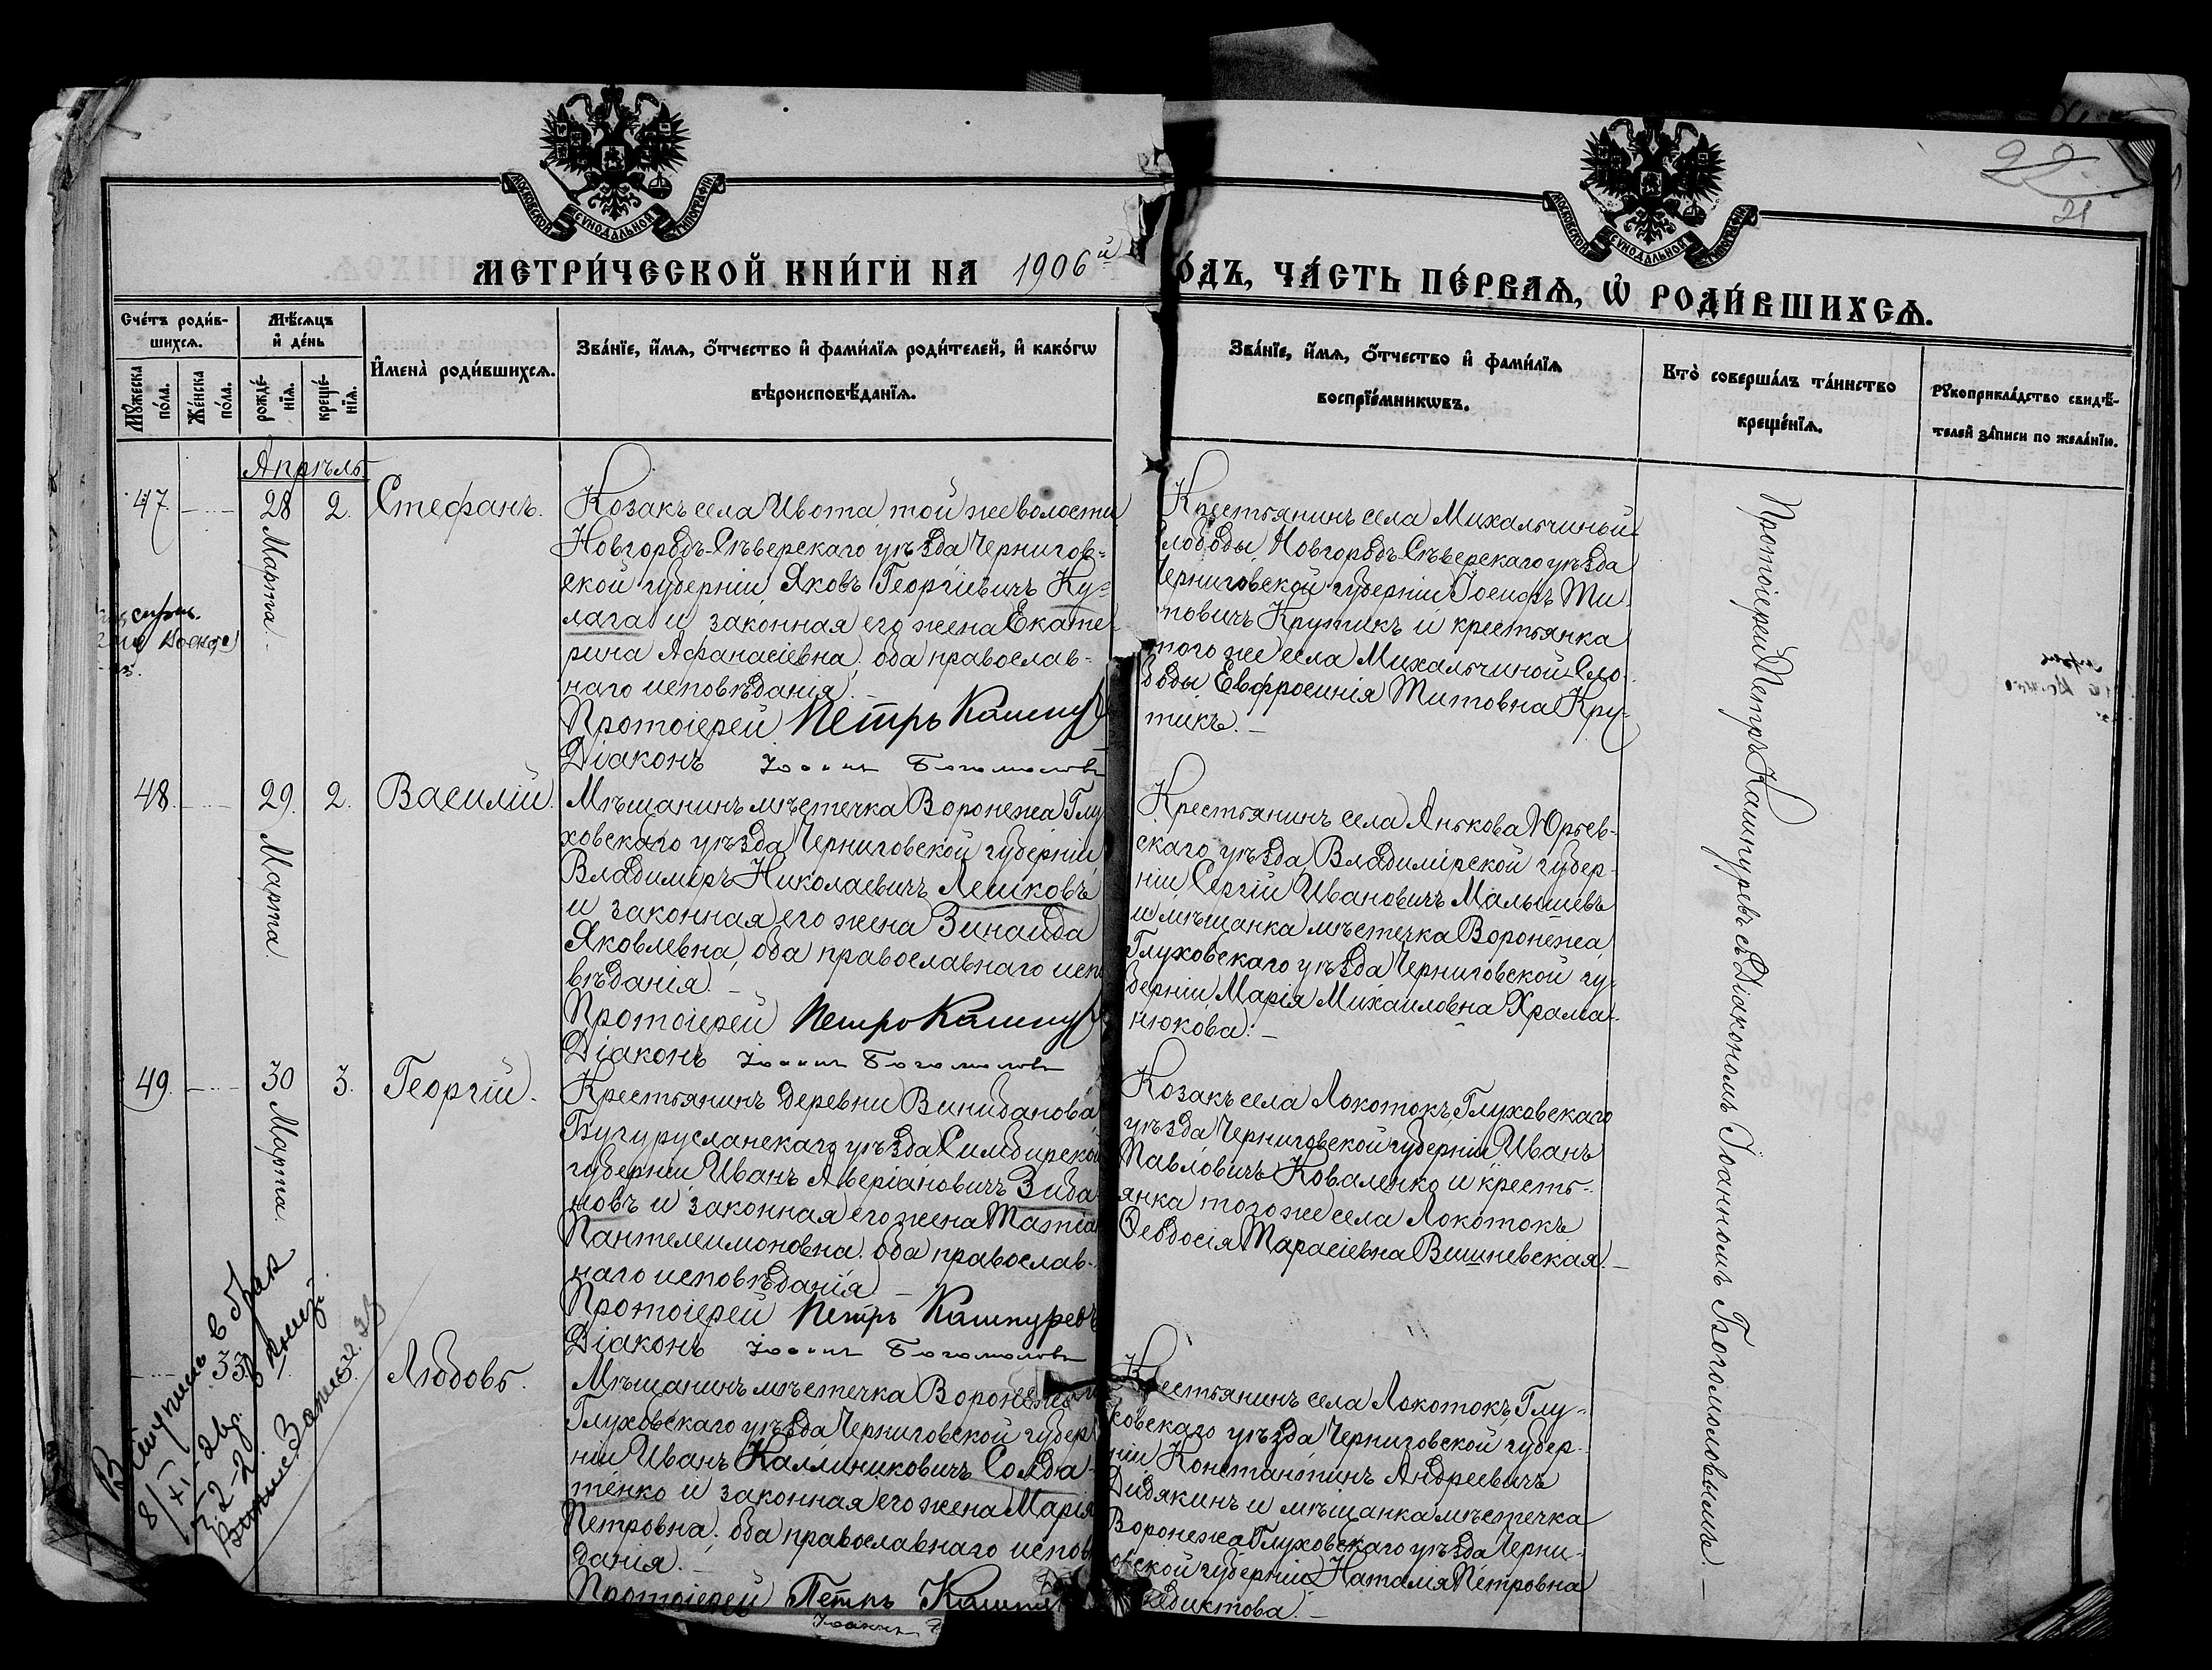 МОСКОВСКОЙ СѴНОДАЛЬНОЙ ТИПОГРАФІИ
МОСКОВСКОЙ СѴНОДАЛЬНОЙ ТИПОГРАФІИ
22
21
МЕТРИ́ЧЕСКОЙ КНИ́ГИ НА 1906й
О́ДЪ, ЧА́СТЬ ПЕ́РВАѦ, Ѡ҆ РОДИ́ВШИХСѦ.
Сче́тъ роди́в-
шихсѧ.
Мѣ́сѧцъ
и҆ де́нь
Мꙋ́жеска
по́ла.
Же́нска
по́ла.
рожде́-
нїѧ.
креще́-
нїѧ.
И҆мена̀ роди́вшихсѧ.
Зва́нїе, и҆́мѧ, ѻ҆́тчество и҆ фами́лїѧ роди́телей, и҆ како́гѡ
вѣроисповѣ́данїѧ.
Зва́нїе, и҆́мѧ, ѻ҆́тчество и҆ фами́лїѧ
воспрїе́мникѡвъ.
Кто̀ соверша́лъ та́инство
креще́нїѧ.
Рꙋкоприкла́дство свидѣ́-
телей за́писи по жела́нїю.
Апрѣль
47. 28 Марта. 2. Стефанъ.
Козакъ села Ивота, той же волости
Новгородъ-Сѣверскаго уѣзда Чернигов-
ской губерніи, Яковъ Георгіевичъ Ку-
лага и законная его жена Екате-
рина Афанасіевна, оба православ-
наго исповѣданія.
Протоіерей Петръ Кашпур
Діаконъ Іоаннъ Богомоловъ
Крестьянинъ села Михальчиный
лободы, Новгородъ-Сѣверскаго уѣзда
Черниговской губерніи Іосифъ Ти-
товичъ Крутикъ и крестьянка
того же села Михальчиной Сло-
боды Евфросинія Титовна Кру-
тикъ.
48. 29. Марта 2. Василій.
Мѣщанинъ мѣстечка Воронежа Глу
ховскаго уѣзда Черниговской губерніи
Владиміръ Николаевичъ Лешковъ
и законная его жена Зинаида
Яковлевна, оба православнаго испо
вѣданія.
Протоіерей Петръ Кашпур
Діаконъ Іоаннъ Богомоловъ
Крестьянинъ села Анькова Юрьев-
скаго уѣзда Владимірской губер-
ніи Сергій Ивановичъ Малышевъ
и мѣщанка мѣстечка Воронежа,
Глуховскаго уѣзда Черниговской гу-
берніи, Марія Михаиловна Храма-
нюкова.
49. 30 Марта. 3. Георгій.
Крестьянинъ деревни
Бугурусланскаго уѣзда Симбирской
губерніи Иванъ Аверіановичъ Зиба-
новъ и законная его жена Татіа
Пантелеимоновна, оба православ-
наго исповѣданія
Протоіерей Петръ Кашпуревъ
Діаконъ Іоаннъ Богомоловъ
Козакъ села Локотокъ, Глуховскаго
уѣзда Черниговской губерніи Иванъ
Павловичъ Коваленко и кресть-
янка того же села Локотокъ
Ѳеодосія Тарасіевна Вишневская.
33. Любовь.
Мѣщанинъ мѣстечка Воронежа
Глуховскаго уѣзда Черниговской губер
ніи Иванъ Каллиниковичъ Солдa-
тенко и законная его жена Марія
Петровна, оба православнаго испов
данія.
Протоіерей Петръ Кашпу
Іоаннъ
Крестьянинъ села Локотокъ, Глу-
ховскаго уѣзда Черниговской губер-
ніи Константинъ Андреевичъ
Дидякинъ и мѣщанка мѣстечка
Воронежа Глуховскаго уѣзда Черни-
овской губерніи Наталія Петровна
едиктова.
Протоіерей Петръ Кашпуревъ съ Діакономъ Іоанномъ Богомоловымъ.
Вступила в брак
8/XI-